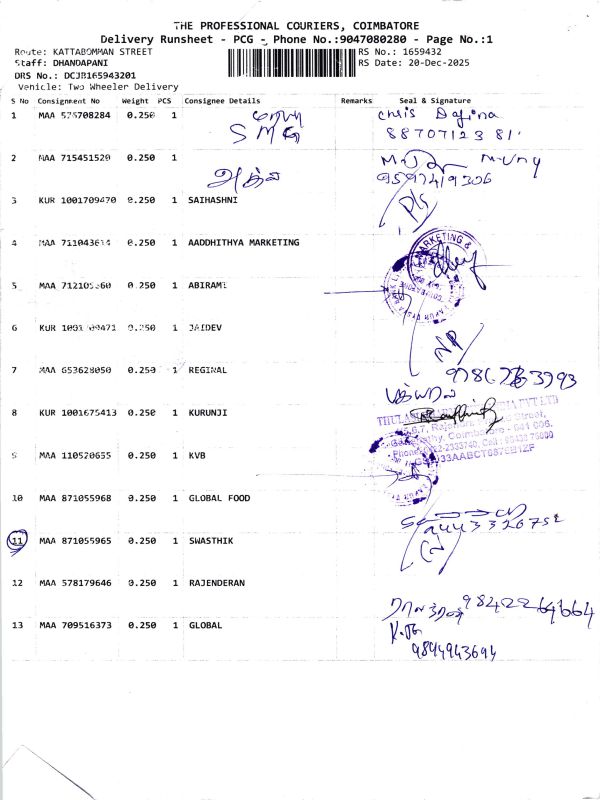 THE PROFESSIONAL COURIERS, COIMBATORE
Delivery Runsheet - PCG - Phone No.:9047080280 - Page No.:1
Route: KATTABOMMAN STREET
RS No.: 1659432
Staff: DHANDAPANI
RS Date: 20-Dec-2025
DRS No.: DCJB165943201
Vehicle: Two Wheeler Delivery
S No Consignment No Weight PCS Consignee Details Remarks Seal & Signature
1 MAA 575708284 0.250 1
SMG
Chris Dafina
88707123 81
2 MAA 715451520 0.250 1
9597419306
3 KUR 1001709470 0.250 1 SAIHASHNI
4 MAA 0.250 1 AADDHITHYA MARKETING
MARKETING &
5 MAA 0.250 1 ABIRAMI
6 KUR 0.250 1 JAIDEV
7 MAA 653628050 0.250 1 REGINAL
8 KUR 1001675413 0.250 1 KURUNJI
Coimbatore - 641 006.
9 MAA 110520655 0.250 1 KVB
10 MAA 871055968 0.250 1 GLOBAL FOOD
9443326752
11 MAA 871055965 0.250 1 SWASTHIK
12 MAA 578179646 0.250 1 RAJENDERAN
9842264664
13 MAA 709516373 0.250 1 GLOBAL
9894943694